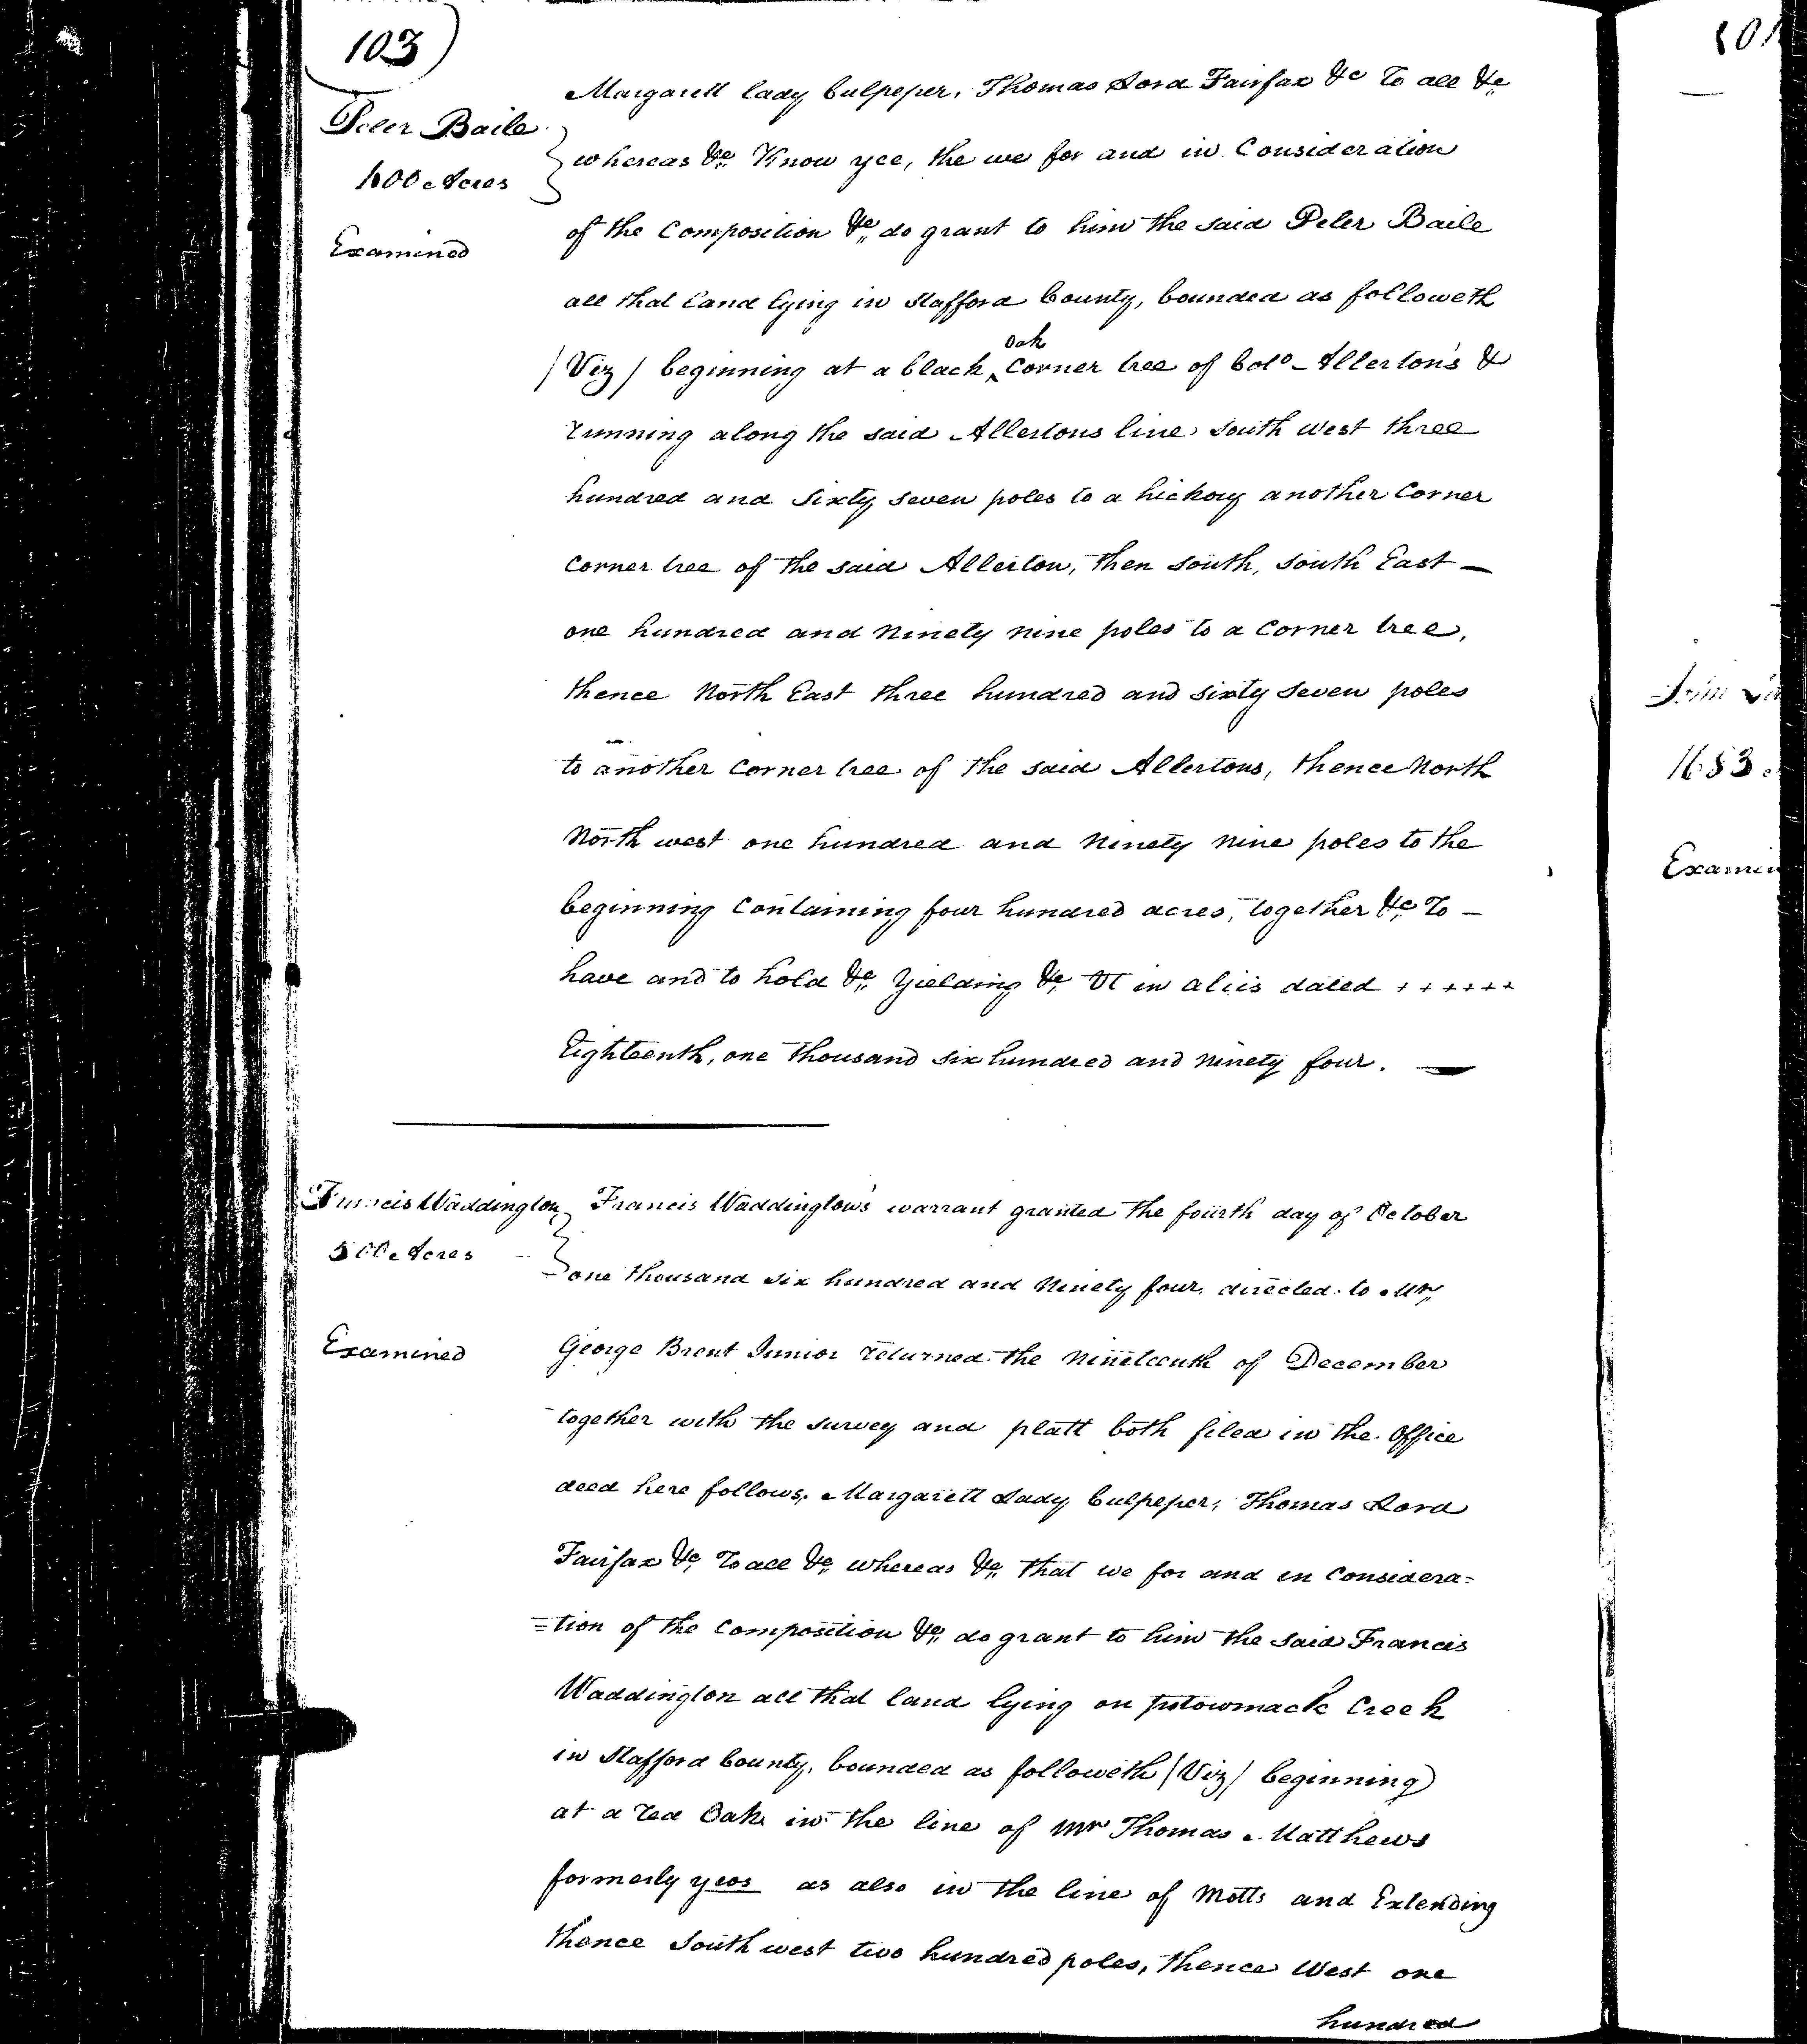 103)
Peter Baile
400 Acres
Examined
Margarett lady Culpeper, Thomas Lord Fairfax &c To all &c
whereas &c Know yee, the we for and in Consideration
of the Composition &c do grant to him the said Peter Baile
all that land lying in Stafford County, bounded as followeth
(Viz) beginning at a black ^ Oak Corner tree of Colo Allerton's &
running along the said Allertons line South West three
hundred and Sixty Seven poles to a hickory another Corner
Corner tree of the said Allerton, then South, South East —
one hundred and Ninety nine poles to a Corner tree,
thence North East three hundred and sixty Seven poles
to another Corner tree of the said Allertons, thence North
North west one hundred and Ninety Nine poles to the
beginning Containing four hundred acres, together &c To —
have and to hold &c Yielding &c Ut in aliis dated + + + + + +
Eighteenth, one thousand six hundred and ninety four. —
Francis Waddington
500 Acres
Examined
Francis Waddington's warrant granted the fourth day of October
one thousand six hundred and Ninety four, directed to Mr
George Brent Junior returned the Nineteenth of December
together with the survey and platt both filed in the Office
deed here follows. Margarett Lady Culpeper, Thomas Lord
Fairfax &c To all &c whereas &c that we for and in Considera=
=tion of the Composition &c do grant to him the said Francis
Waddington all that land lying on potowmack Creek
in Stafford County, bounded as followeth (Viz) beginning
at a red Oak in the line of Mr Thomas Matthews
formerly yeos as also in the line of Motts and Extending
thence South west two hundred poles, thence West one
hundred
1683.